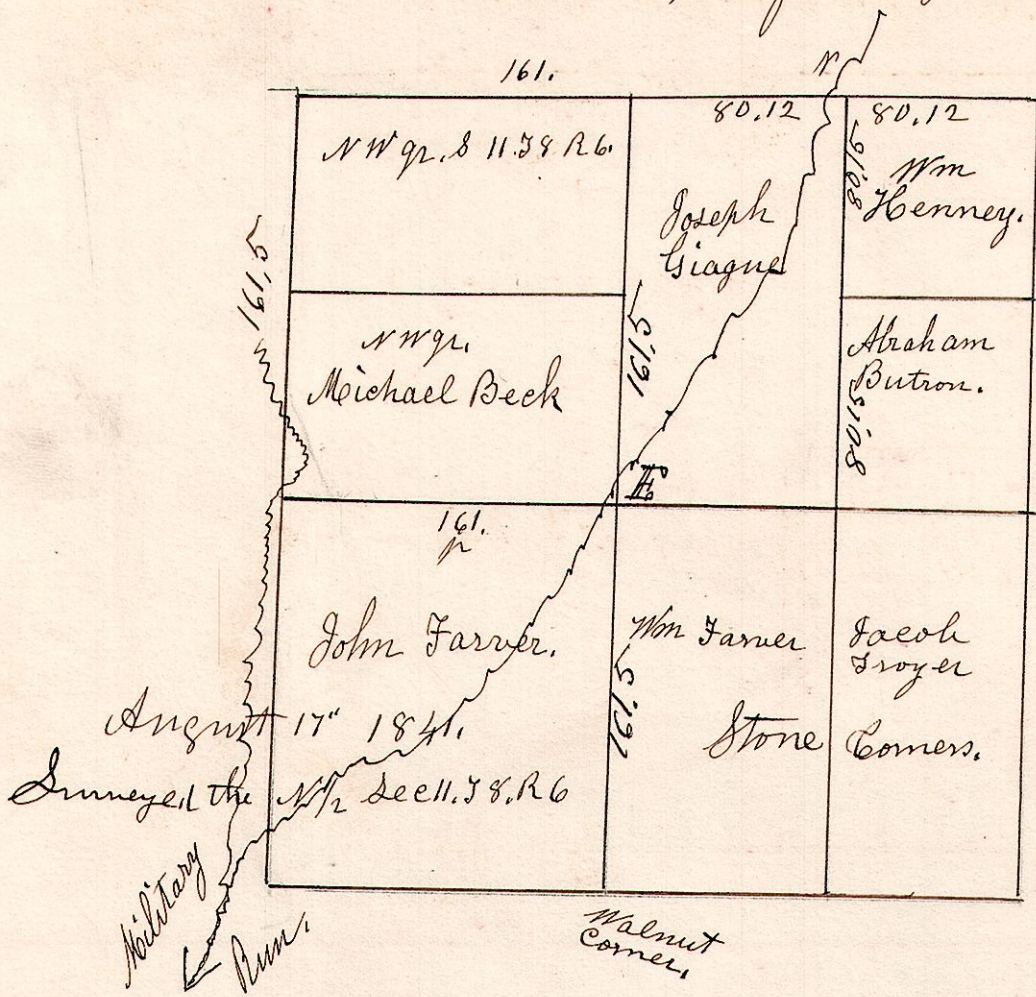 161.
80.12
80.12
N W qr. S 11. T 8 R 6.
80,15
Wm
Henney.
Joseph
Giague
161,5
161,5
N W qr.
Michael Beck
Abraham
Butron.
80,15
161.
John Farver.
Wm Farver
Jacob
Troyer
161,5
August 17" 1841.
Stone Corners.
Surveyed the N 1/2 Sec 11. T 8. R 6
Military
Run.
Walnut
Corner.